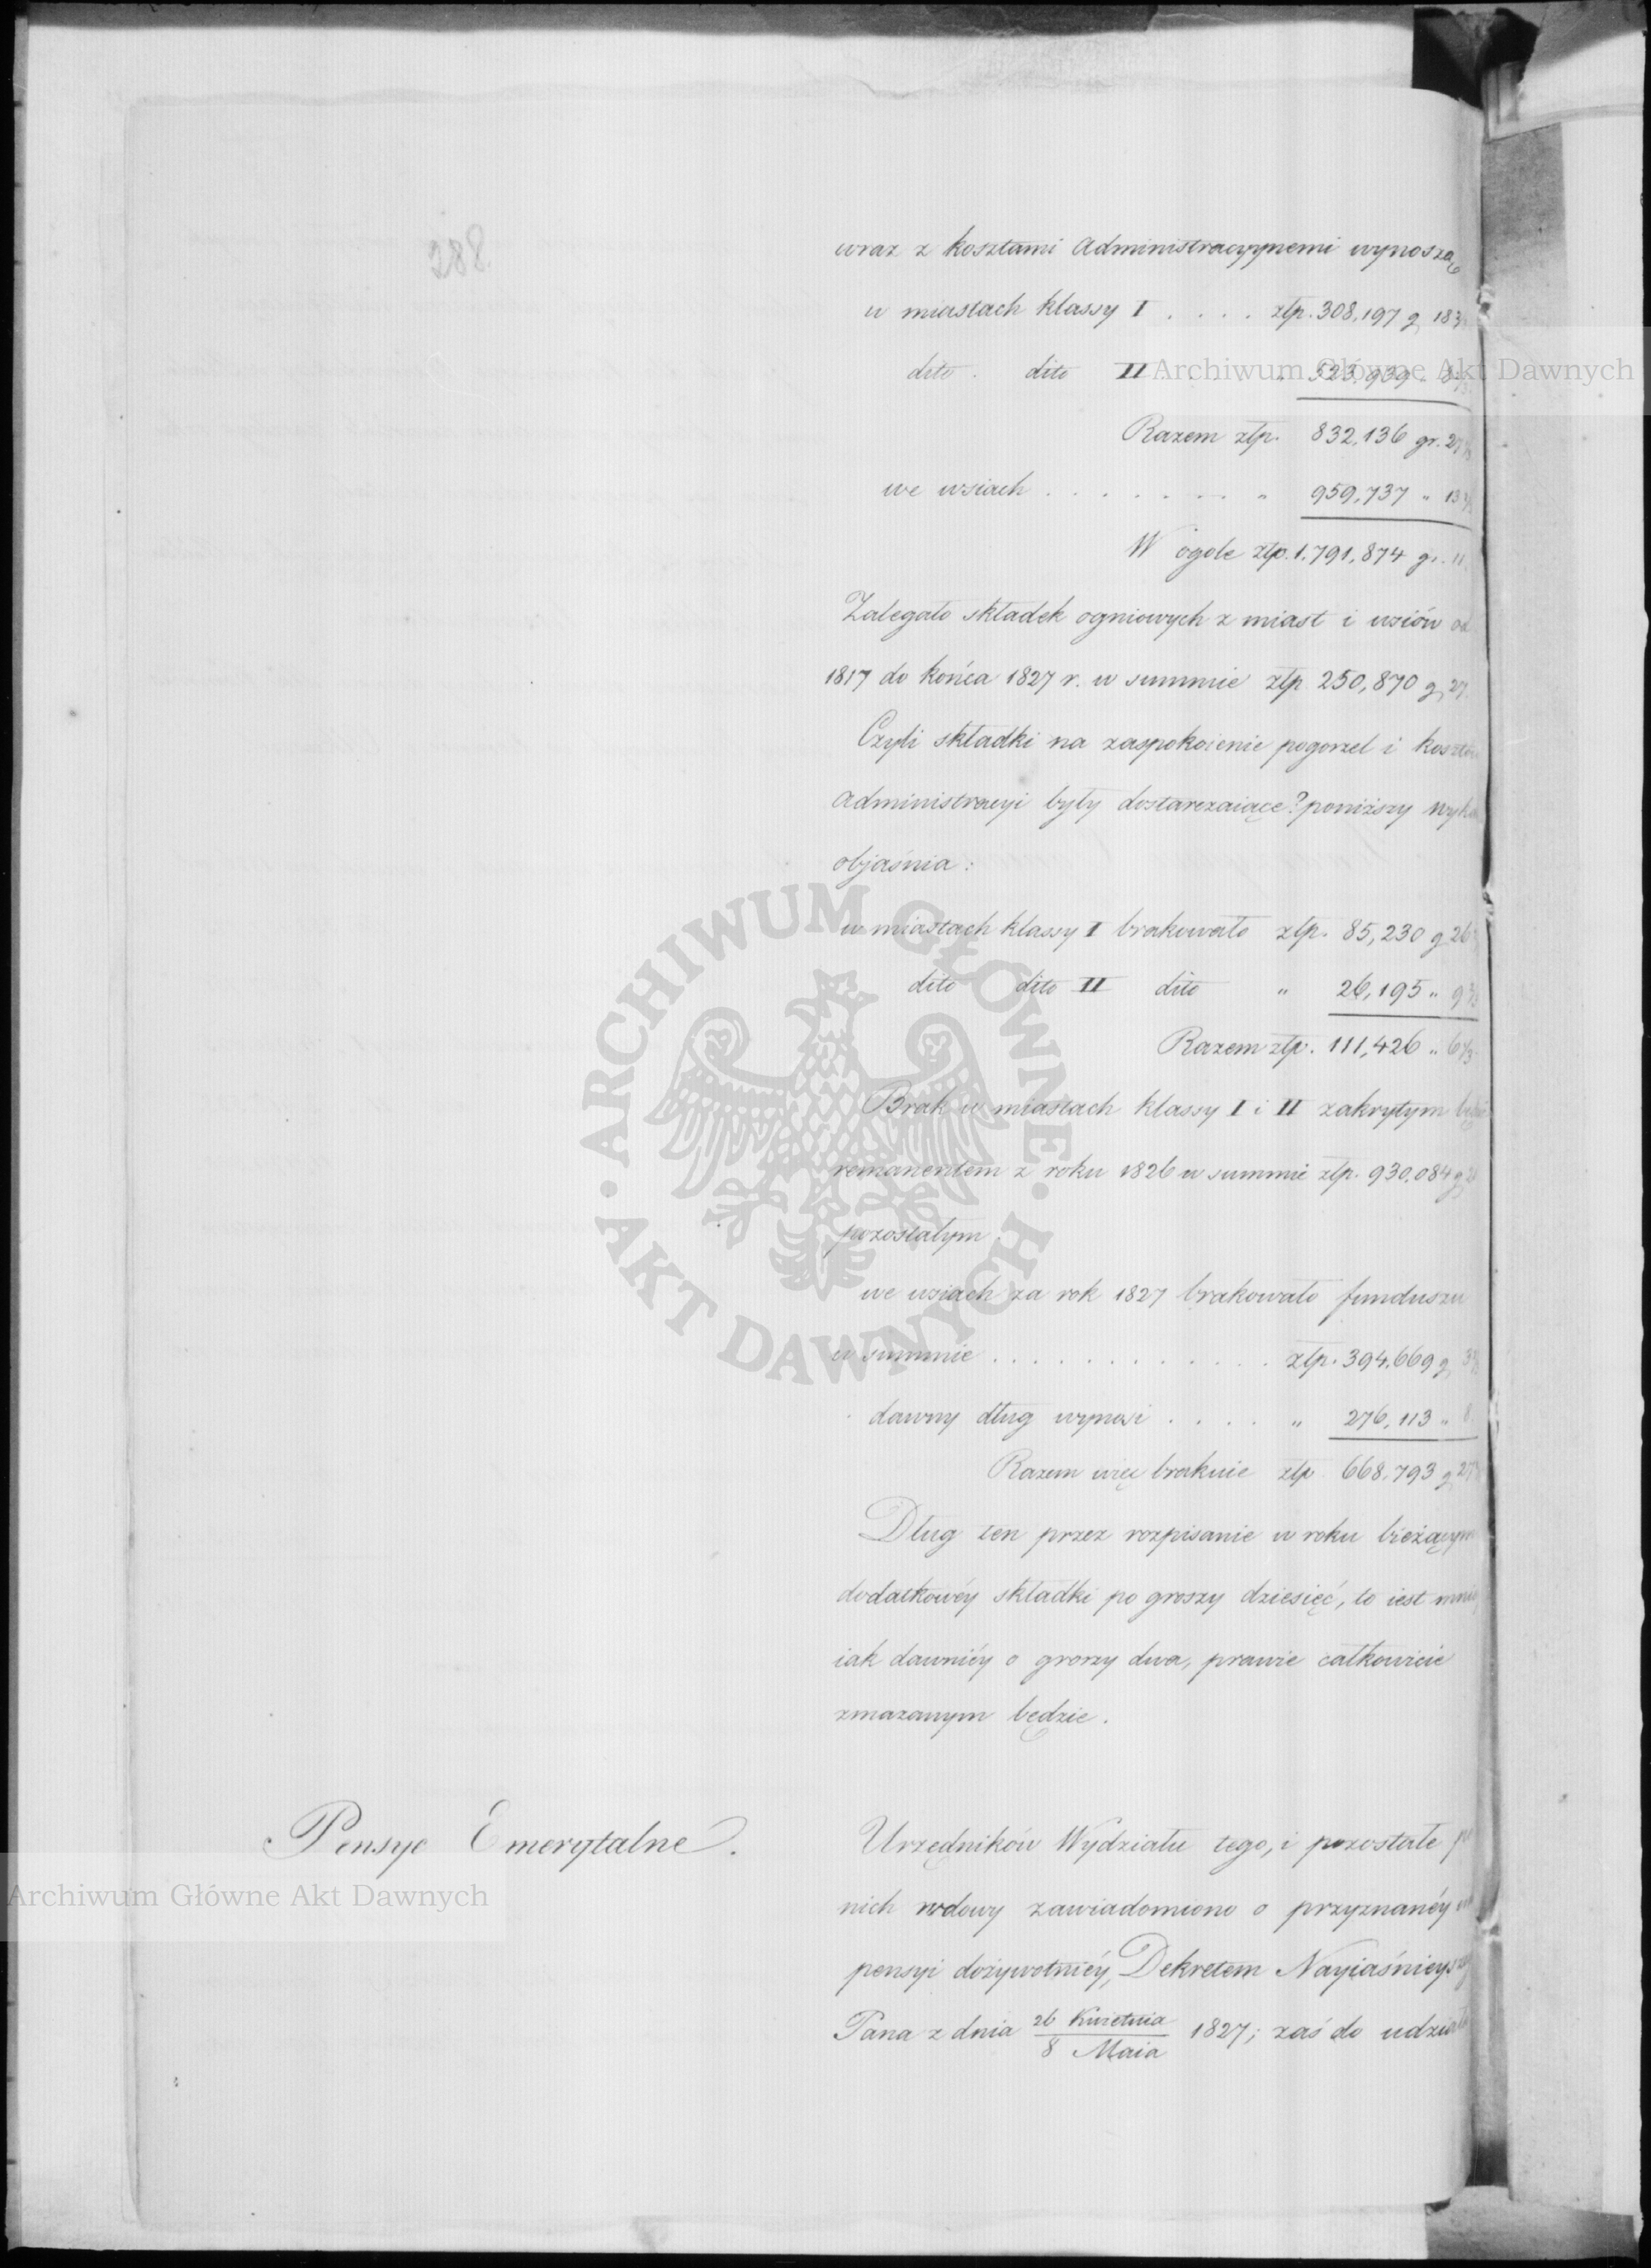 288.
wraz z kosztami Administracyynemi wynoszą
w miastach klassy I . . . . złp. 308,197 g 18
dito . dito II . . . . " 523,939 "
Razem złp. 832,136 gr. 27
we wsiach . . . . . . . . " 959,737 " 13
W ogole złp. 1,791,874 gr. 11.
Zalegało składek ogniowych z miast i wsiów od
1817 do końca 1827 r. w summie złp 250,870 g 27.
Czyli składki na zaspokoienie pogorzel i kosztów
Administracyi były dostarczaiące? poniższy wyka
objaśnia :
w miastach klassy I brakowało złp. 85,230 g 26
dito dito II dito " 26,195 " 9
Razem złp. 111,426 " 6
Brak w miastach klassy I i II zakrytym
remanentem z roku 1826 w summie złp. 930,084 g
pozostałym.
we wsiach za rok 1827 brakowało funduszu
w summie . . . . . . . . . . . . . złp. 394,669 g
dawny dług wynosi . . . . " 276,113 " 8.
Razem więc brakuie złp 668,793 g 27
Dług ten przez rozpisanie w roku bieżącym
dodatkowéy składki po groszy dziesięć, to iest mniéy
iak dawniéy o groszy dwa, prawie całkowicie
zmazanym będzie.
Pensye Emerytalne.
Urzędników Wydziału tego, i pozostałe po
nich wdowy zawiadomiono o przyznanéy im
pensyi dożywotniéy, Dekretem Nayiaśnieysz
Pana z dnia 26 Kwietnia / 8 Maia 1827; zaś do udziału
Archiwum Główne Akt Dawnych
Archiwum Główne Akt Dawnych
ARCHIWUM GŁÓWNE · AKT DAWNYCH ·